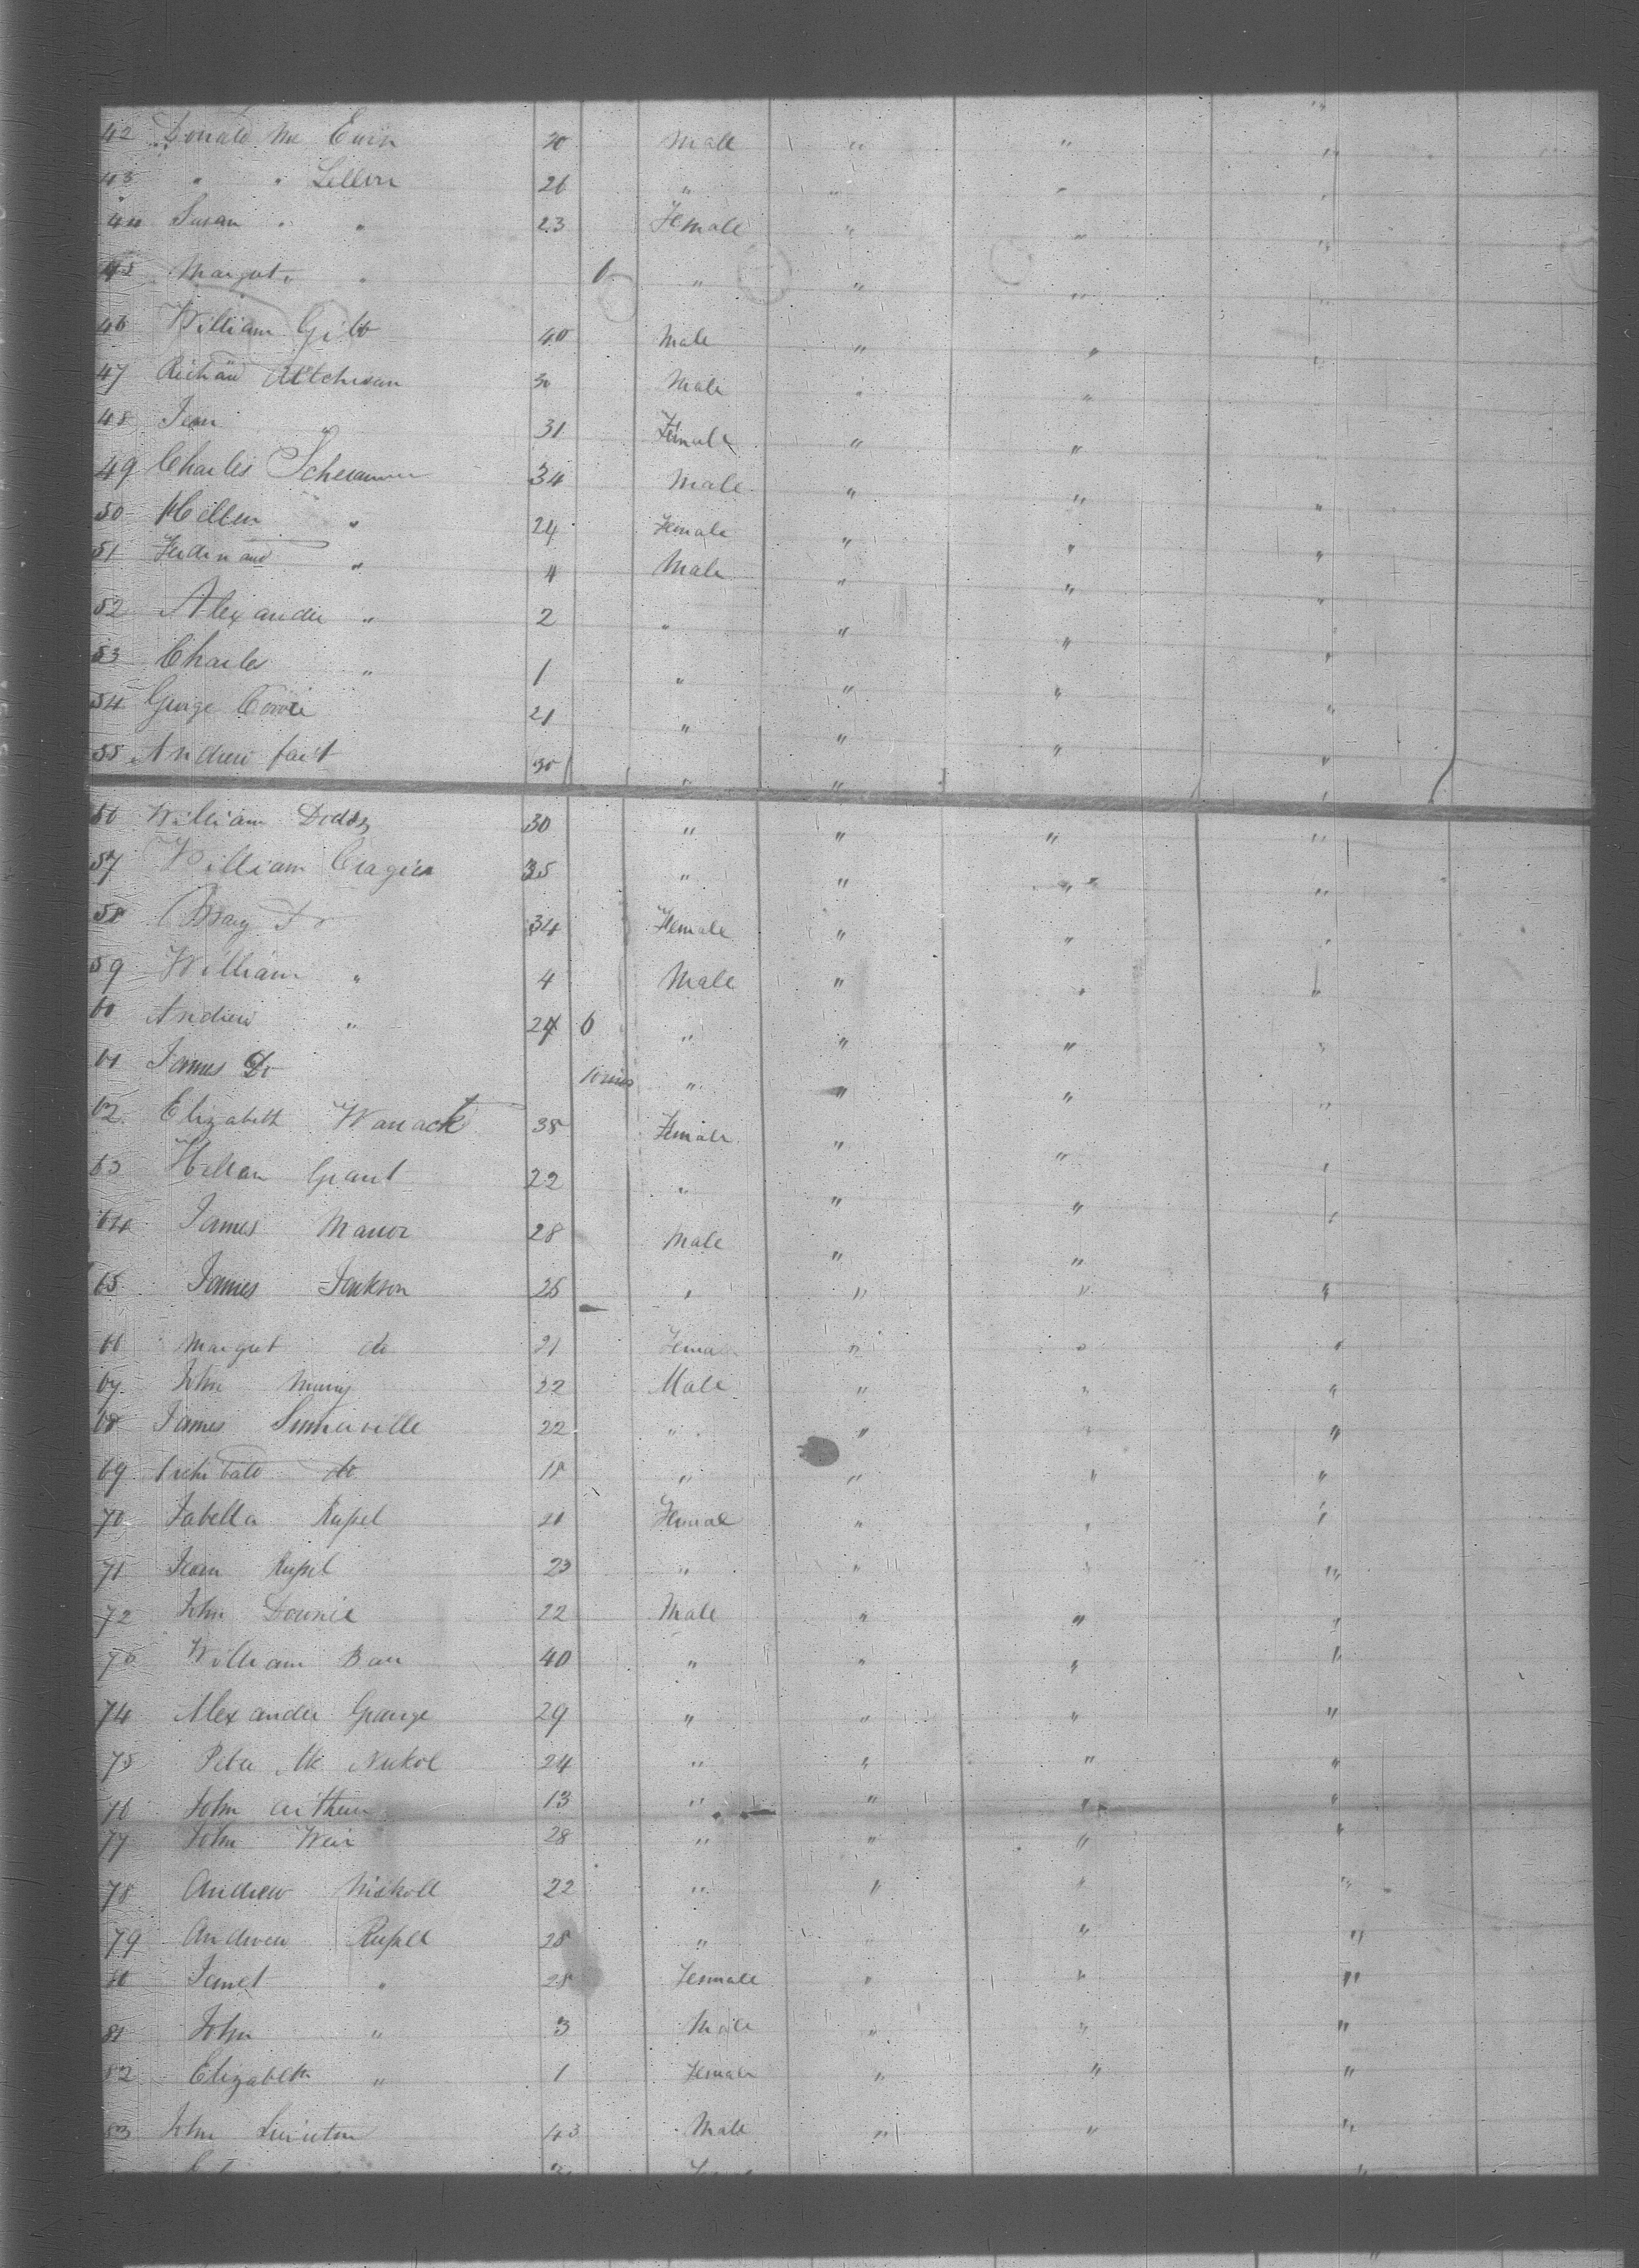 42 Donald Mc Ewin 30 Male " " "
43 " " Lillien 26 " " " "
44 Susan " " 23 Female " " "
45 Margut " " 6 " " " "
46 William Gibb 40 Male " " "
47 Richard Aitchison 30 Male " "
48 Jean " 31 Female " "
49 Charles 34 Male " " "
50 Hellen " 24 Female " " "
51 Ferdinand " 4 Male " " "
52 Alexander " 2 " " " "
53 Charles " 1 " " " "
54 George Cowie 21 " " " "
55 Andrew fait 30 " " " "
56 William Dodds 30 " " " "
57 William Cragier 35 " " " "
58 Mary Do 34 Female " " "
59 William " 4 Male " " "
60 Andrew " 2 6 " " " "
61 James Do 10 mos " " " "
62 Elizabeth Warrack 38 Female " " "
63 Hellan Grant 22 " " " "
64 James Manor 28 Male " " "
65 James Jackson 25 " " " "
66 Margret do 21 Female " " "
67 John Murry 22 Male " " "
68 James Sumerville 22 " " " "
69 Archibald do 18 " " " "
70 Isabella Russel 21 Female " " "
71 Jean Russel 23 " " " "
72 John Downie 22 Male " " "
73 William Barr 40 " " " "
74 Alexander George 29 " " " "
75 Peter Mc Nickol 24 " " " "
76 John Arthur 13 " " " "
77 John Weir 28 " " " "
78 Andrew Nickoll 22 " " " "
79 Andrew Russel 28 " " "
80 Janet " 28 Female " " "
81 John " 3 Male " " "
82 Elizabeth " 1 Female " " "
83 John 43 Male " " "